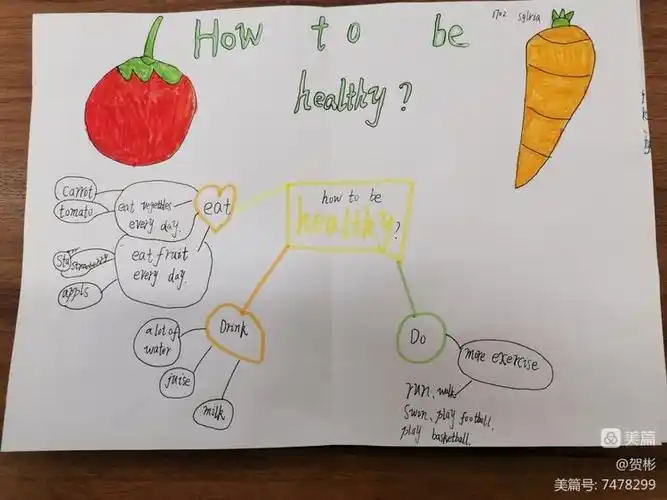 How to be
1702 sylvia
healthy?
how to be
healthy?
eat
carrot
tomato
eat vegetables
every day.
eat fruit
every day.
strawberry
appls
Drink
a lot of
water
juise
milk
Do
more exercise
run、walk
Swon、play football、
play basketball.
美篇
@贺彬
美篇号: 7478299